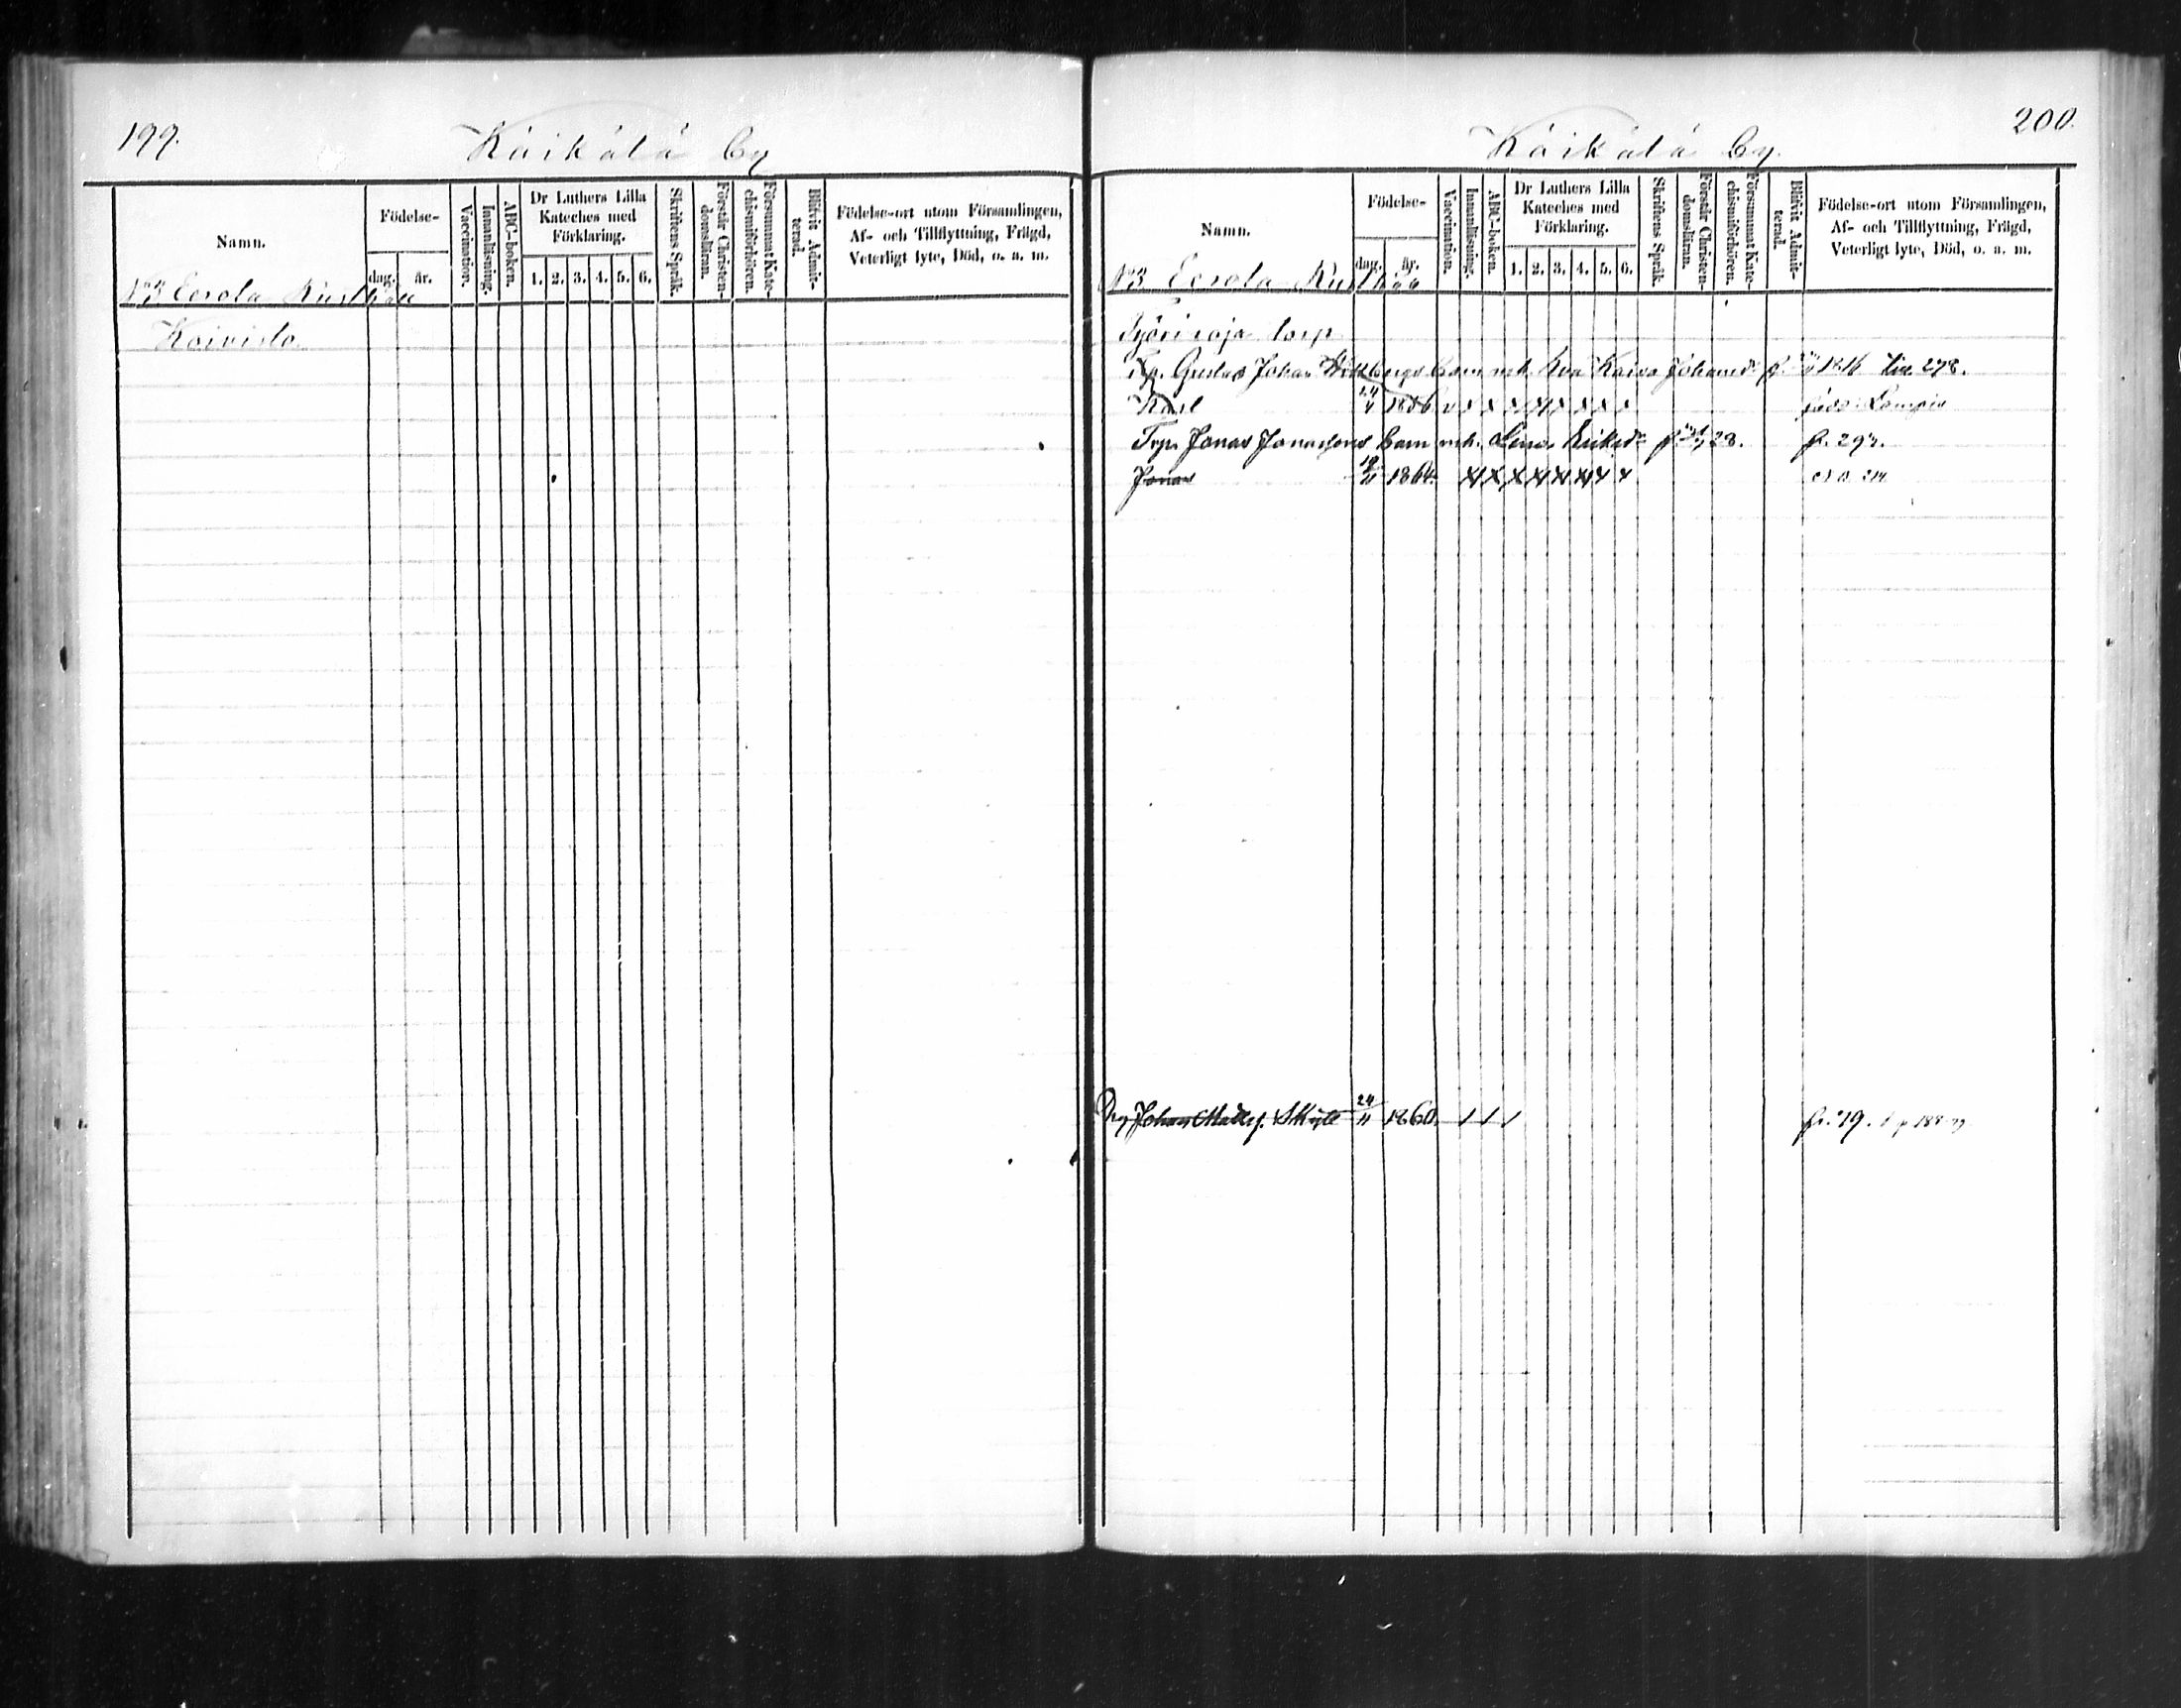 199.
Käikälä by
Namn.
Födelse-
dag.
år.
Vaccination.
Innanläsning.
ABC-boken.
Dr Luthers Lilla
Kateches med
Förklaring.
1. 2. 3. 4. 5. 6.
Skriftens Språk.
Förstår Christen-
domsläran.
Försummat Kate-
chismiförhören.
Blifvit Admit-
terad.
Födelse-ort utom Församlingen,
Af- och Tillflyttning, Frägd,
Veterligt lyte, Död, o. a. m.
No 3 Eerola Rusthåll
Koivisto
200.
Käikälä by.
Namn.
Födelse-
dag.
år.
Vaccination.
Innanläsning.
ABC-boken.
Dr Luthers Lilla
Kateches med
Förklaring.
1. 2. 3. 4. 5. 6.
Skriftens Språk.
Förstår Christen-
domsläran.
Försummat Kate-
chismiförhören.
Blifvit Admit-
terad.
Födelse-ort utom Församlingen,
Af- och Tillflyttning, Frägd,
Veterligt lyte, Död, o. a. m.
No 3 Eerola
torp
Gustaf Johan barn m. h. Eva Kaisa Johansd: f. 1816 278.
Karl 1856 Lampis
Trp. Jonas Jonassons barn m. h. Lena Eriksd: f. 28. f. 293.
Jonas 1864.
Johan Mattsf. 24/11 1860. fr. 79.